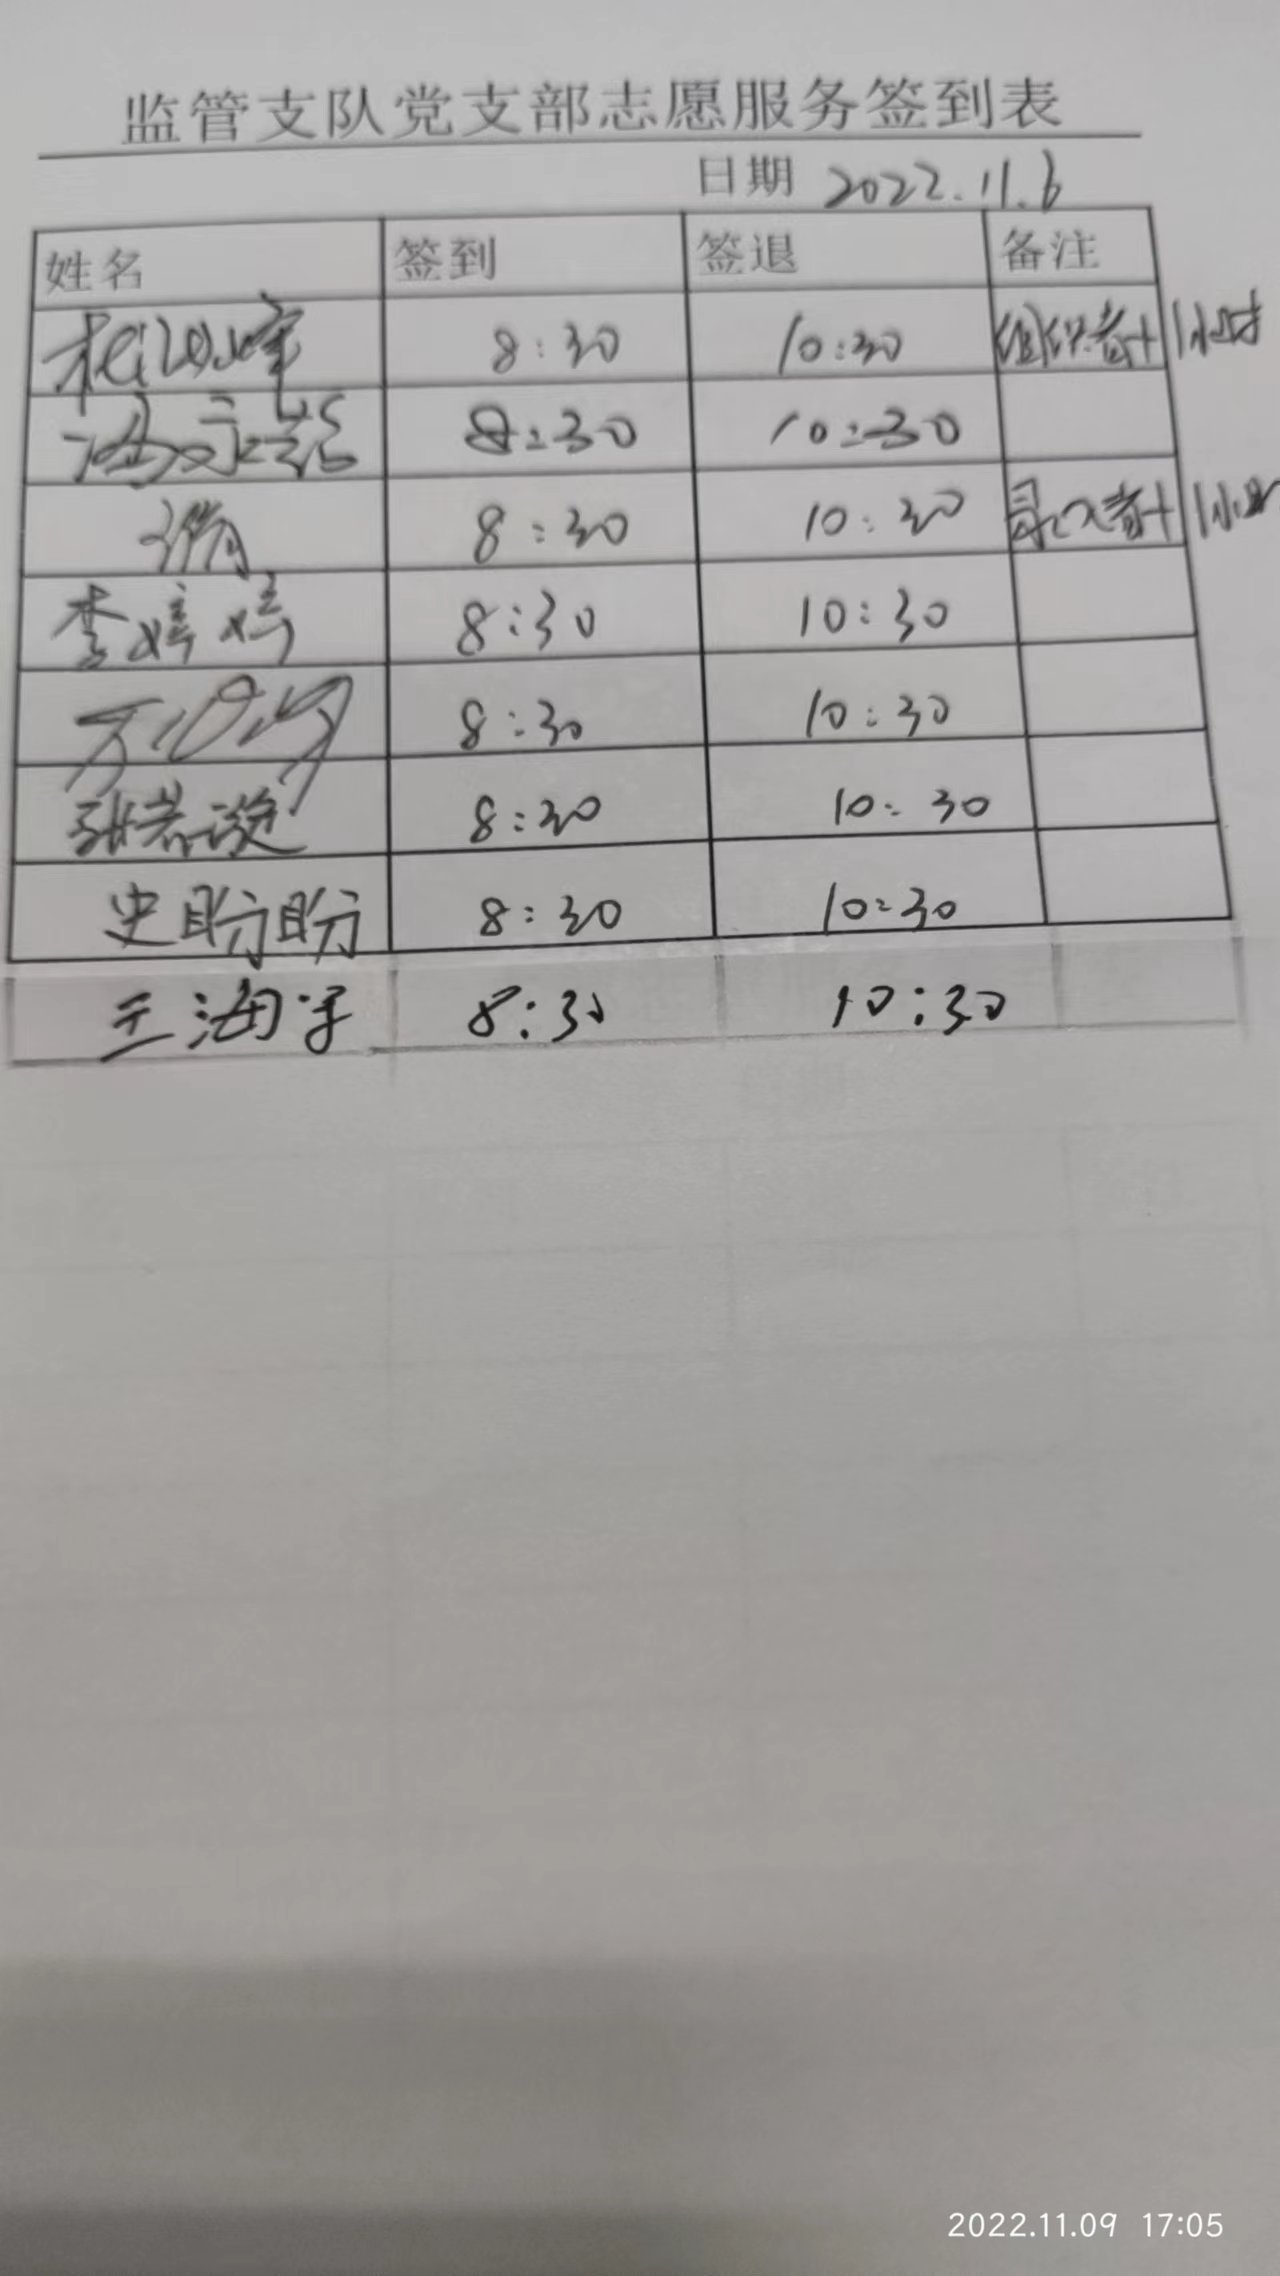 监管支队党支部志愿服务签到表
日期 2022.11.6
姓名 签到 签退 备注
8:30 10:30 组织者+1小时
8:30 10:30
8:30 10:30 录入者+1小时
李婷婷 8:30 10:30
8:30 10:30
张若谈 8:30 10:30
史盼盼 8:30 10:30
王海宇 8:30 10:30
2022.11.09 17:05